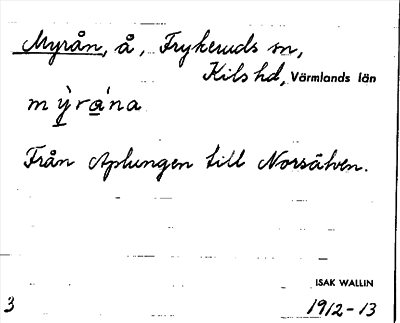 Myrån, å, Frykeruds sn,
Kils hd, Värmlands län
mỳrána
Från Aplungen till Norsälven.
ISAK WALLIN
3 1912-13